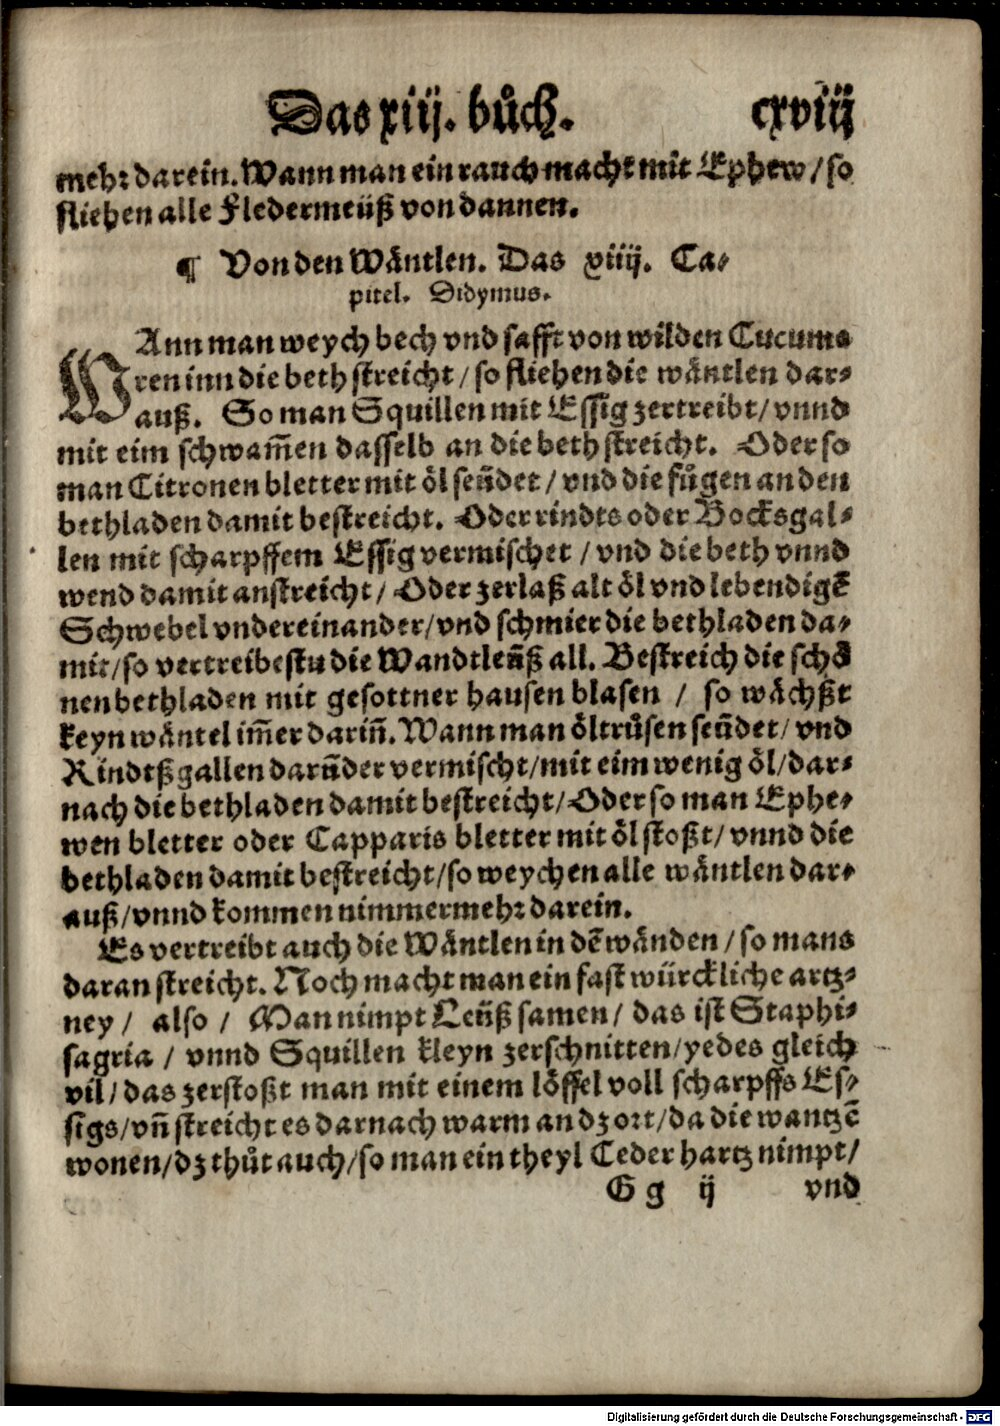 Das xiij. bůch. cxviij
mehr darein. Wann man ein rauch macht mit Ephew / so
fliehen alle Fledermeüß von dannen.
¶ Von den Wäntlen. Das xiiij. Ca-
pitel. Didymus.
WAnn man weych bech vnd safft von wilden Cucume
ren inn die beth streicht / so fliehen die wäntlen dar-
auß. So man Squillen mit Essig zertreibt / vnnd
mit eim schwam̄en dasselb an die beth streicht. Oder so
man Citronen bletter mit öl seüdet / vnd die fůgen an den
bethladen damit bestreicht. Oder rindts oder Bocksgal-
len mit scharpffem Essig vermischet / vnd die beth vnnd
wend damit anstreicht / Oder zerlaß alt öl vnd lebendigē
Schwebel vndereinander / vnd schmier die bethladen da-
mit / so vertreibestu die Wandtleüß all. Bestreich die schö
nen bethladen mit gesottner hausen blasen / so wächßt
keyn wäntel im̄er darin̄. Wann man öltrůsen seüdet / vnd
Rindtßgallen darunder vermischt / mit eim wenig öl / dar-
nach die bethladen damit bestreicht / Oder so man Ephe-
wen bletter oder Capparis bletter mit öl stoßt / vnnd die
bethladen damit bestreicht / so weychen alle wäntlen dar-
auß / vnnd kommen nimmermehr darein.
Es vertreibt auch die Wäntlen in dē wänden / so mans
daran streicht. Noch macht man ein fast würckliche artz-
ney / also / Man nimpt Leüß samen / das ist Staphi-
sagria / vnnd Squillen kleyn zerschnitten / yedes gleich
vil / das zerstoßt man mit einem löffel voll scharpffs Es-
sigs / vn̄ streicht es darnach warm an dz ort / da die wantzē
wonen / dz thůt auch / so man ein theyl Ceder hartz nimpt /
G g ij vnd
Digitalisierung gefördert durch die Deutsche Forschungsgemeinschaft - DFG